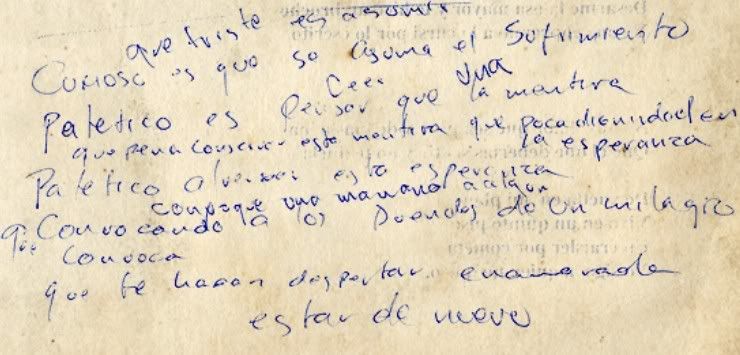 que triste es asumir
Curioso es que se asuma el Sufrimiento
Creer una
Patetico es Pensar que la mentira
que pena conservar esta mentira que poca dignidad en
la esperanza
Patetico esta esperanza
una mañana
Convocando a los Duendes de un milagro
que
Convoca
que te hacen despertar enamorada
estar de nuevo